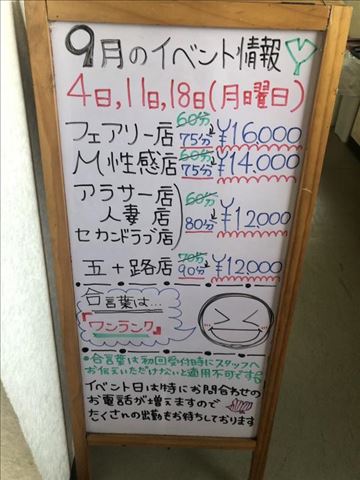 9月のイベント情報
4日,11日,18日(月曜日)
フェアリー店 60分 75分 ¥16,000
M性感店 60分 75分 ¥14,000
アラサー店
人妻店 60分 80分 ¥12,000
セカンドラブ店
五十路店 70分 90分 ¥12,000
合言葉は…
『ワンランク』
・合言葉は初回受付時にスタッフへ
お伝えいただけないと適用不可です
イベント日は特にお問合わせの
お電話が増えますので
たくさんの出勤をお待ちしております